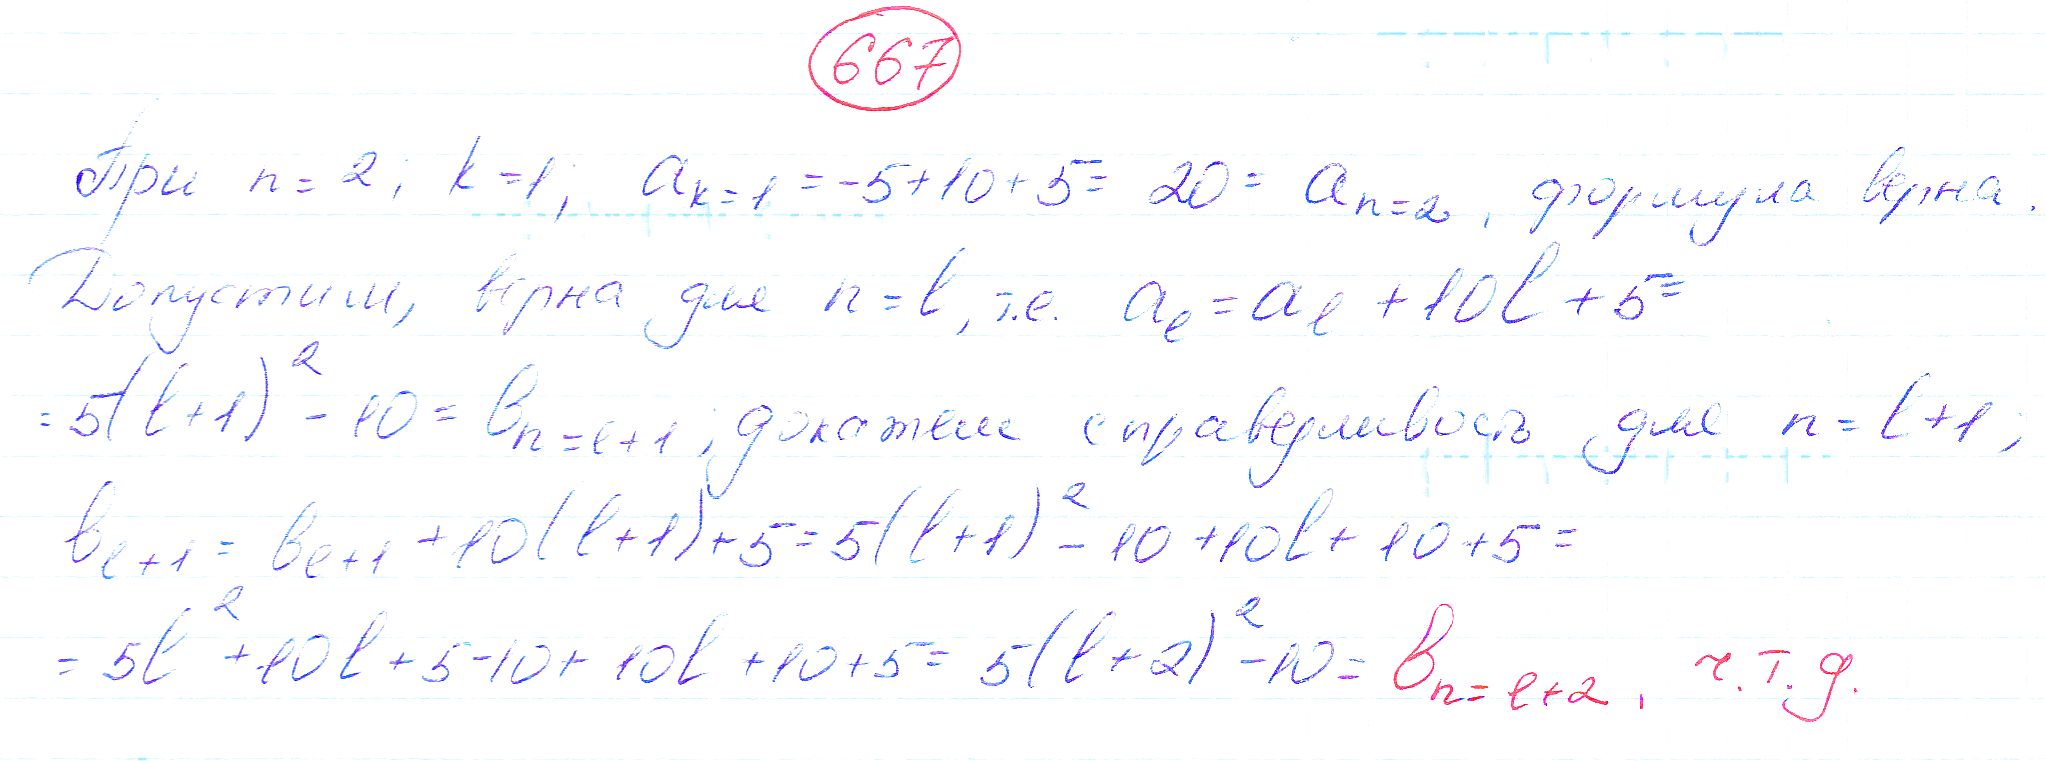 667
При n=2; k=1; a_{k=1} = -5+10+5= 20= a_{n=2}, формула верна.
Допустим, верна для n=l, т.е. a_l = a_l + 10l + 5 =
= 5(l+1)² - 10 = b_{n=l+1}; докажем справедливость для n=l+1;
b_{l+1} = b_{l+1} + 10(l+1) + 5 = 5(l+1)² - 10 + 10l + 10 + 5 =
= 5l² + 10l + 5 - 10 + 10l + 10 + 5 = 5(l+2)² - 10 = b_{n=l+2}, ч.т.д.